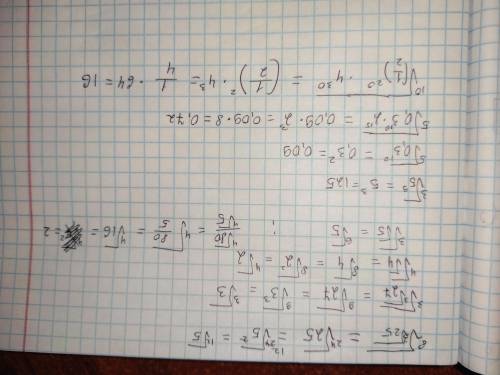 ⁸√(³√25) = ²⁴√25 = ²⁴√5² = ¹²√5
³√(³√27) = ⁹√27 = ⁹√3³ = ³√3
⁴√√4 = ⁸√4 = ⁸√2² = ⁴√2
³√√5 = ⁶√5 ; ⁴√80/⁴√5 = ⁴√(80/5) = ⁴√16 = 2
³√5⁹ = 5³ = 125
⁵√0,3¹⁰ = 0,3² = 0,09
⁵√0,3¹⁰·2¹⁵ = 0,09·2³ = 0,09·8 = 0,72
¹⁰√(1/2)²⁰·4³⁰ = (1/2)²·4³ = 1/4·64 = 16